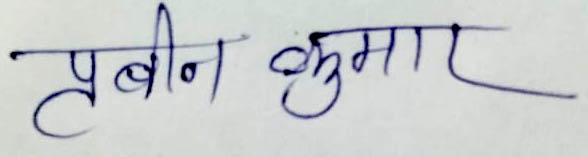 प्रबीन कुमार